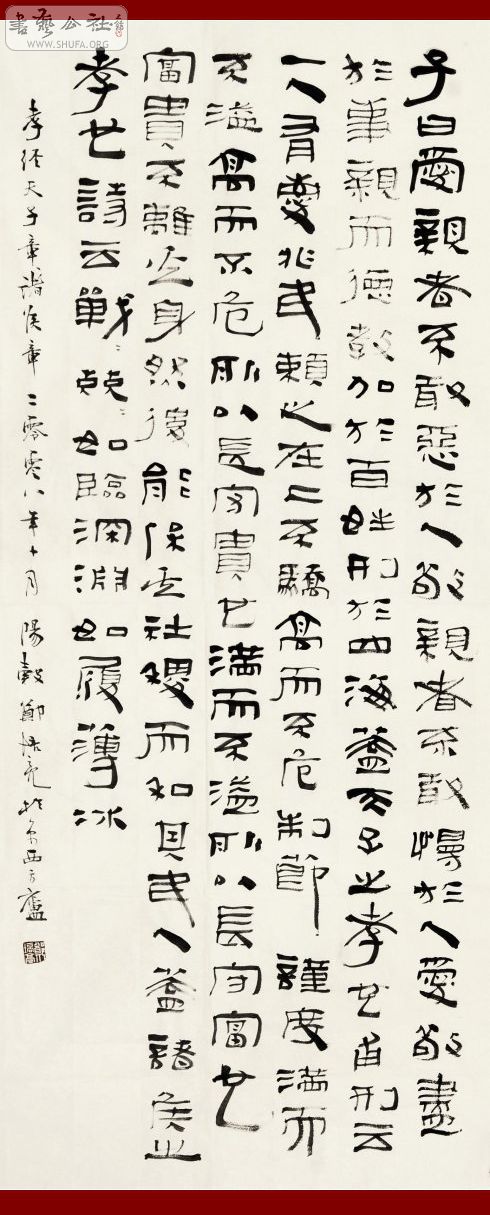 書藝公社
WWW.SHUFA.ORG
子曰愛親者不敢惡於人敬親者不敢慢於人愛敬盡
於事親而德教加於百姓刑於四海蓋天子之孝也甫刑云
一人有慶兆民賴之在上不驕高而不危制節謹度滿而
不溢高而不危所以長守貴也滿而不溢所以長守富也
富貴不離其身然後能保其社稷而和其民人蓋諸侯之
孝也詩云戰〻兢〻如臨深淵如履薄冰
孝經天子章諸侯章二零零八年十月陽穀鄭培亮於京西廬